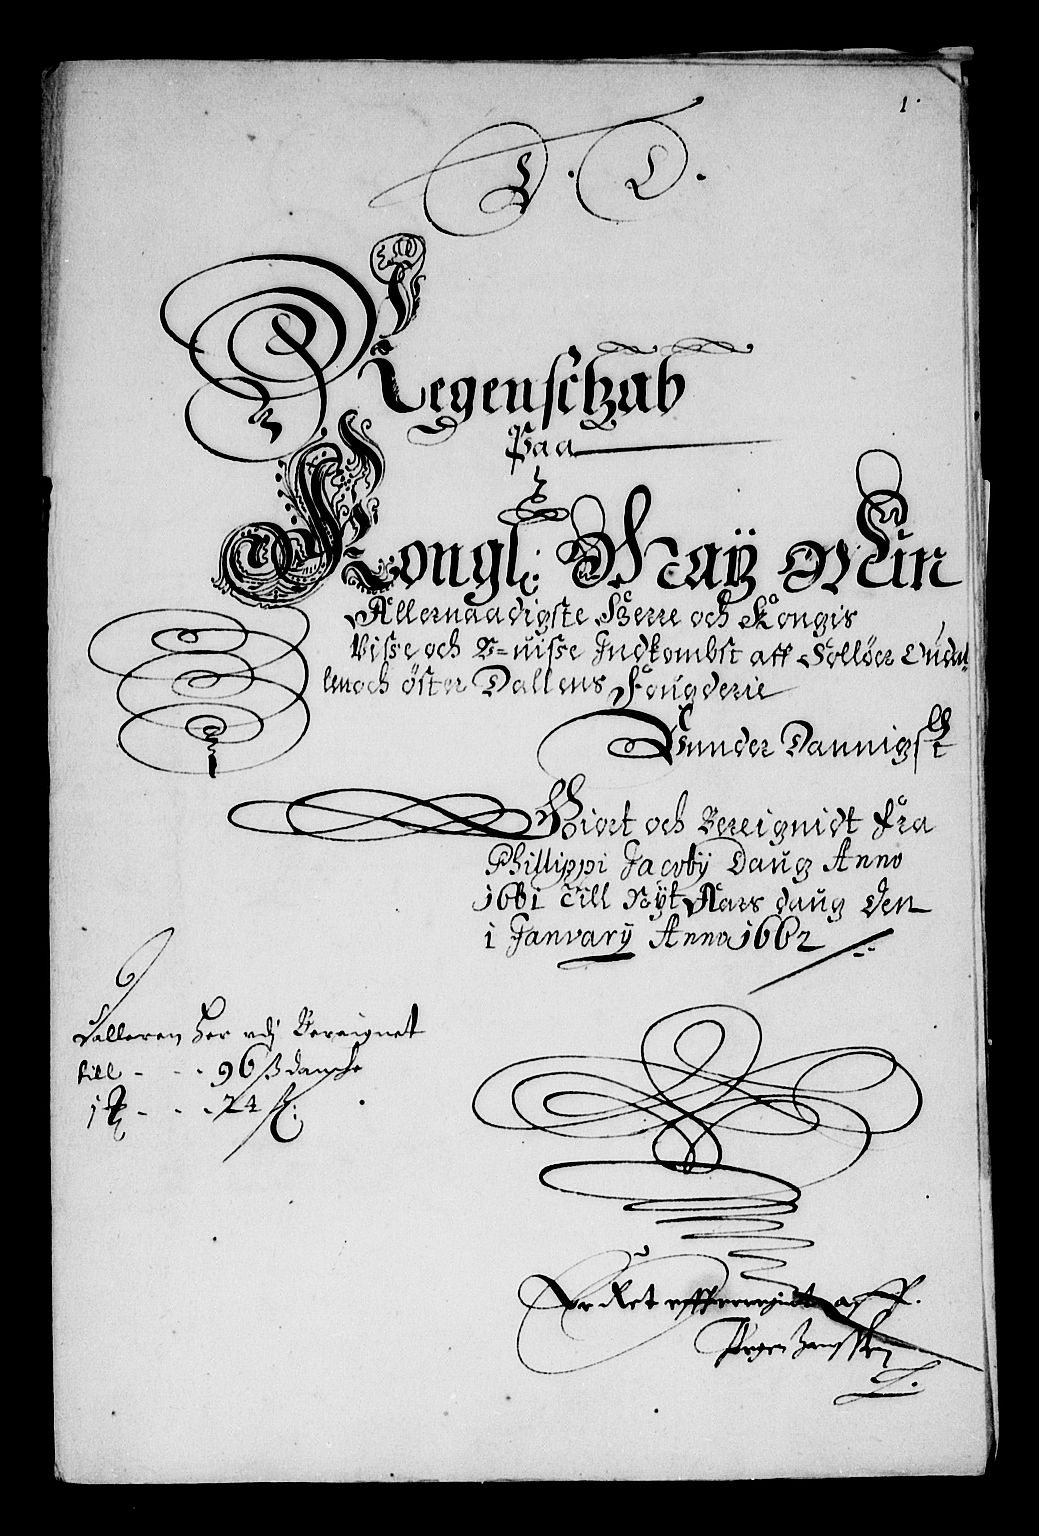 1.
C. C.
Regenschab
Paa
Kongl: May Min
Allernaadigste Herre och Kongis
Visse och V=uisse Indkombst aff Solløer Oudal
len och øster Dallens Fougderie
Vnnder Dannigst
Giort och Bereignidt fra
Phillippi Jacoby Daug Anno
1661 Till Nÿt Aars daug den
1 Januarÿ Anno 1662
Dalleren her vdj Bereignet
till - - - 96 ß danske
1 - - - 24 ß:
Er Ret
Jørgen Hanssen